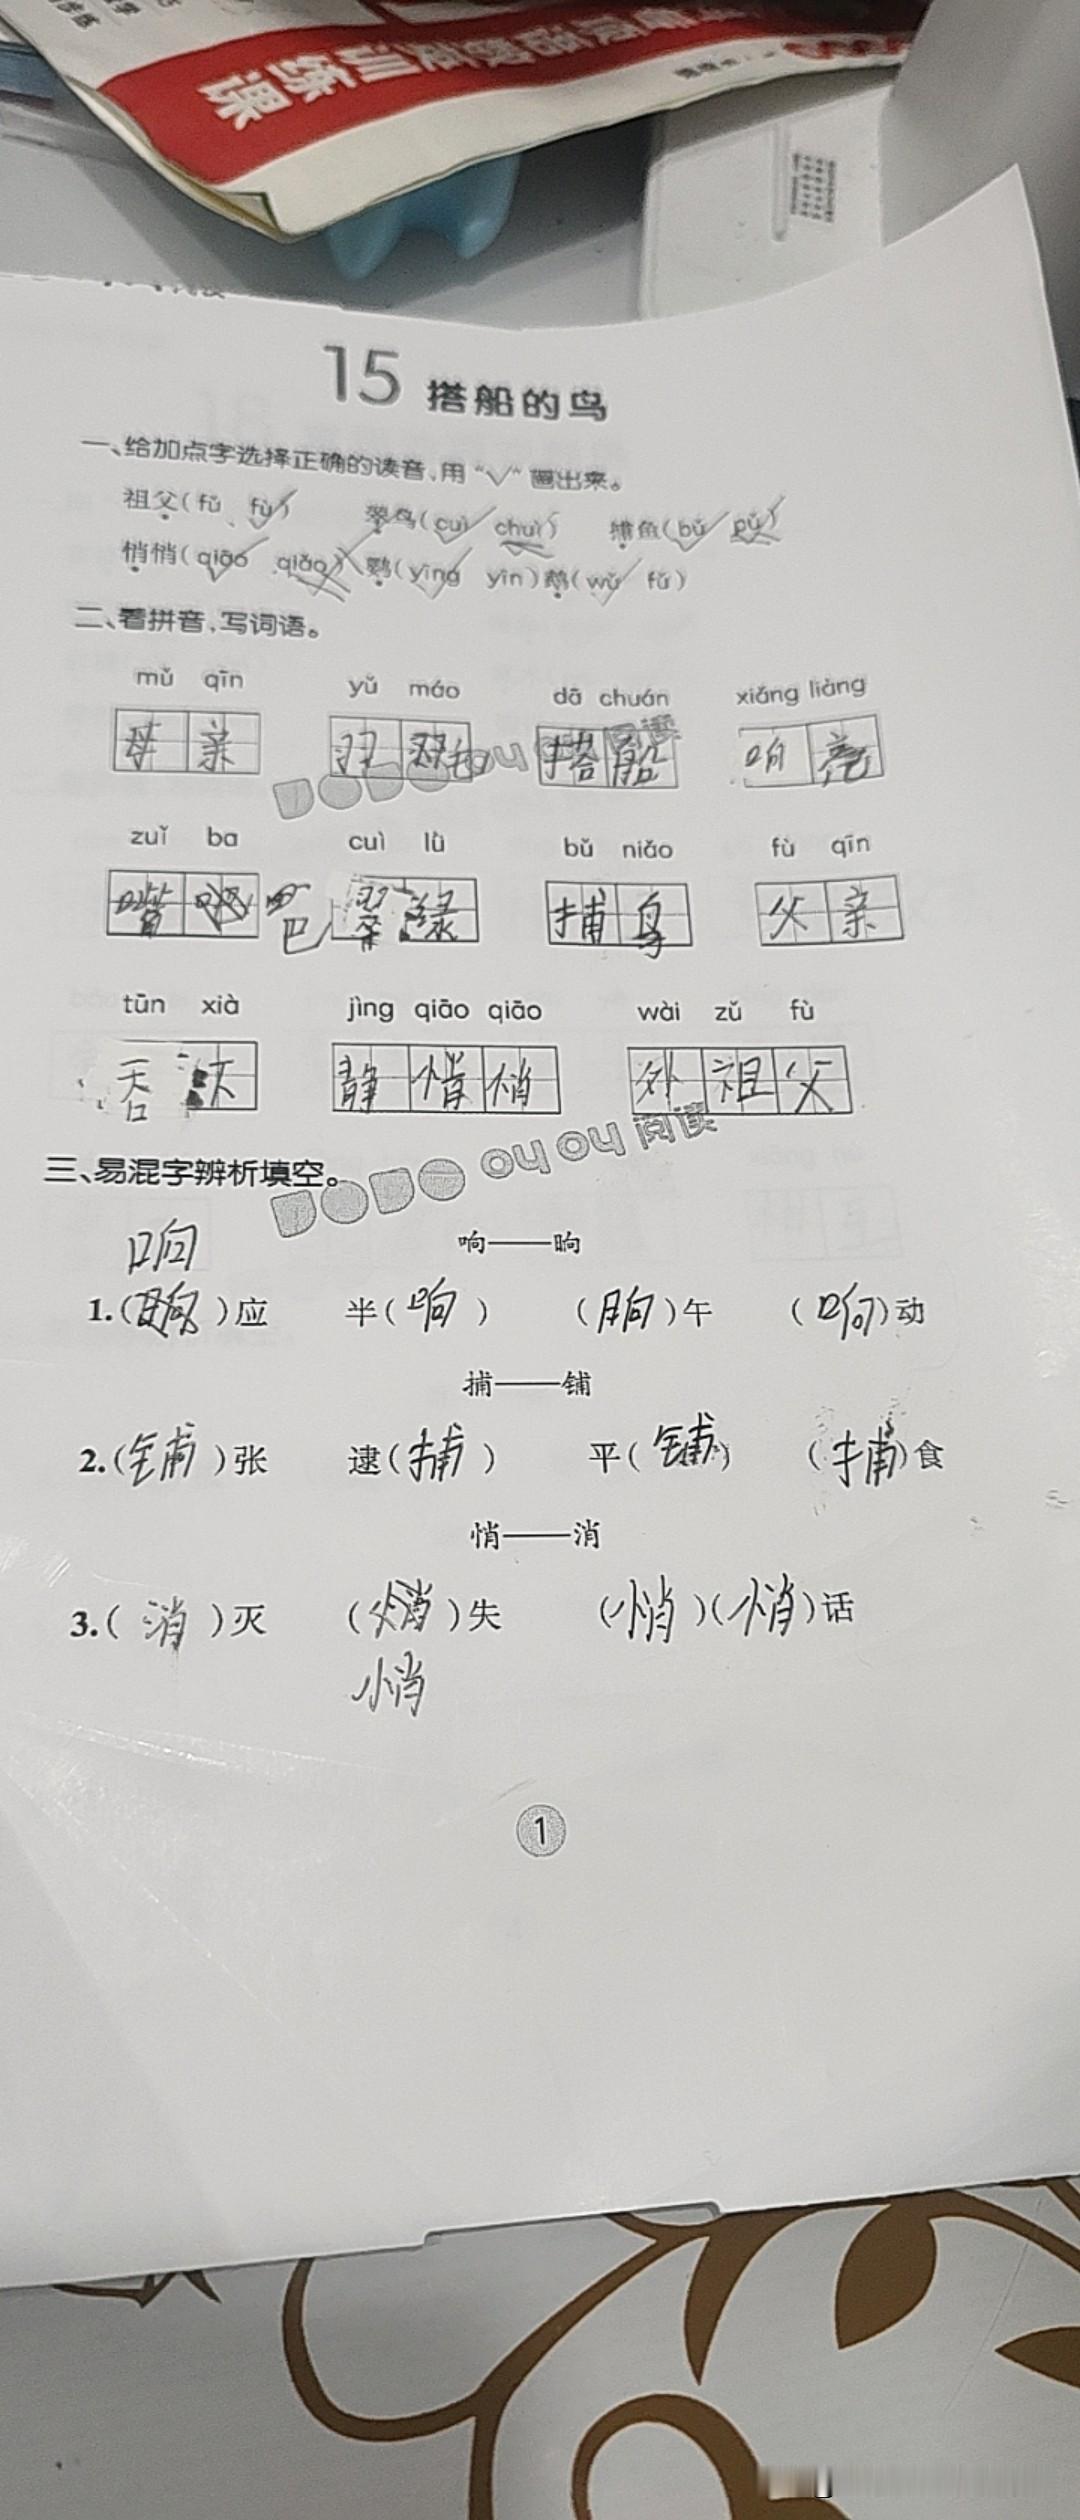 训练课
15 搭船的鸟
一、给加点字选择正确的读音,用“√”画出来。
祖父(fǔ fù√) 翠鸟(cuì√ chuì) 捕鱼(bǔ√ pǔ)
悄悄(qiāo√ qiǎo) 鹦(yīng√ yīn)鹉(wǔ√ fǔ)
二、看拼音,写词语。
mǔ qīn yǔ máo dā chuán xiǎng liàng
母亲 羽 毛 搭船 响亮
zuǐ ba cuì lǜ bǔ niǎo fù qīn
嘴 吧 巴 翠绿 捕鸟 父亲
tūn xià jìng qiāo qiāo wài zǔ fù
吞下 静悄悄 外祖父
DODO OUOU 阅读
三、易混字辨析填空。
响——晌
响
1.( )应 半(响) (晌)午 (响)动
捕——铺
2.(铺)张 逮(捕) 平(铺) (捕)食
悄——消
3.(消)灭 ( )失 (悄)(悄)话
悄
1